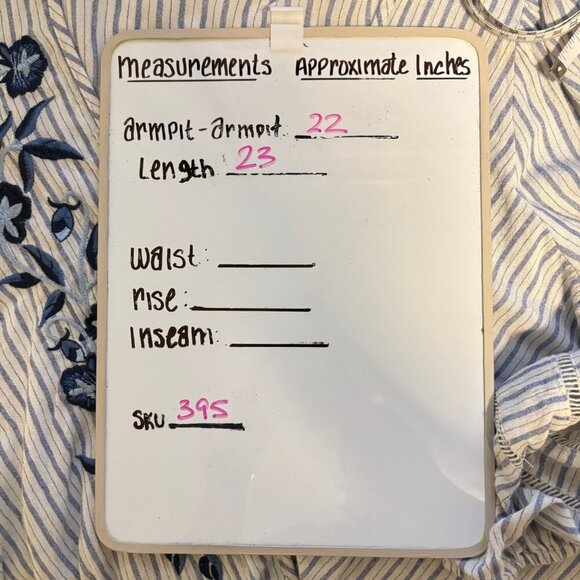 measurements Approximate Inches
armpit-armpit: 22
Length 23
waist:
rise:
Inseam:
SKU 395